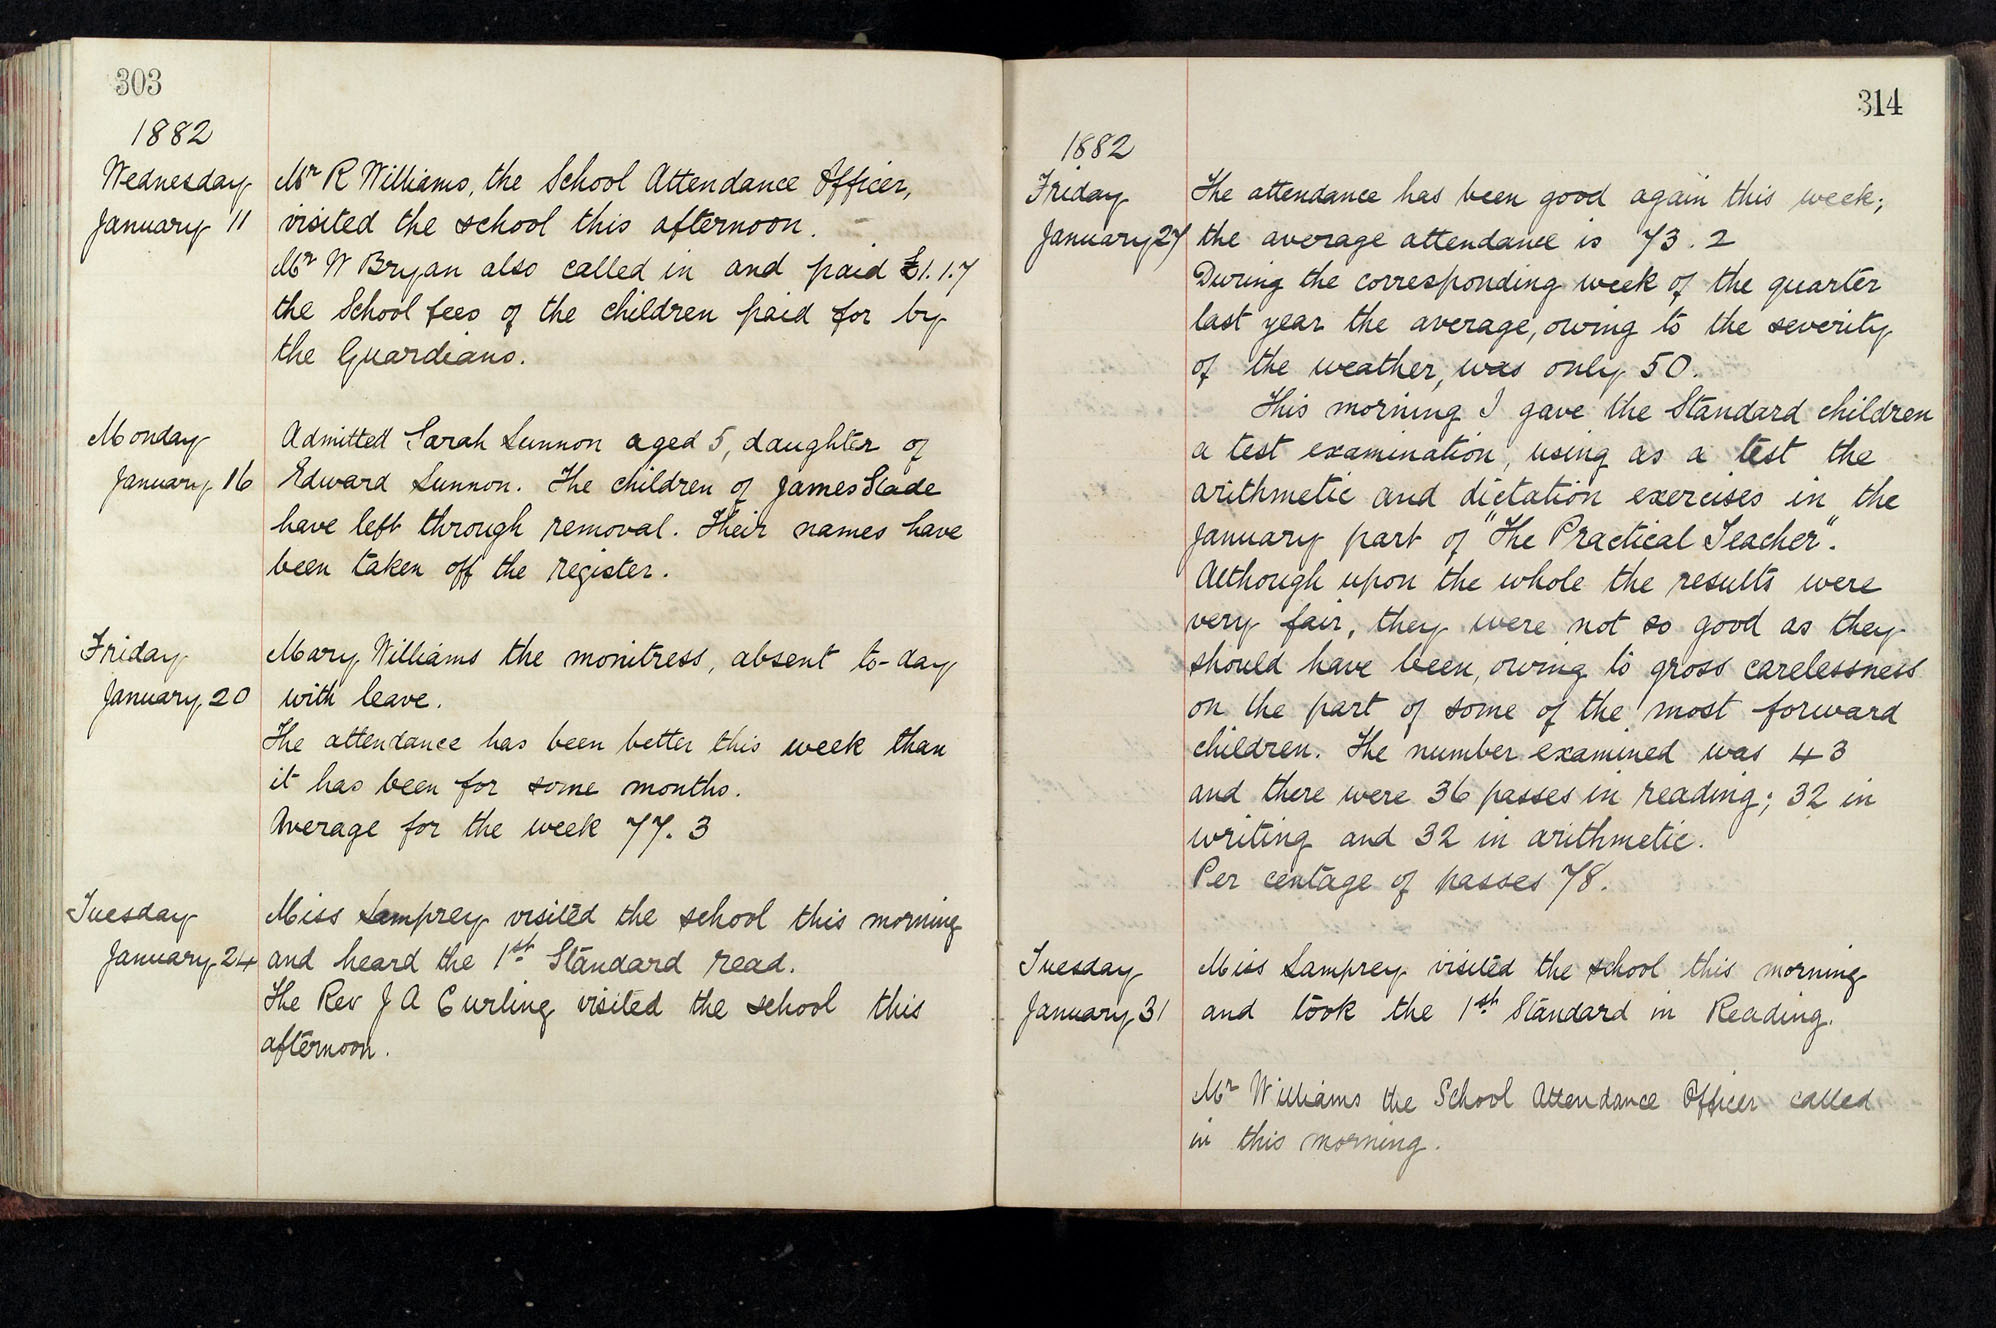 303
1882
Wednesday
January 11
Mr R Williams, the School Attendance Officer,
visited the school this afternoon.
Mr W Bryan also called in and paid £1.1.7
the School fees of the children paid for by
the Guardians.
Monday
January 16
Admitted Sarah Lunnon aged 5, daughter of
Edward Lunnon. The children of James Slade
have left through removal. Their names have
been taken off the register.
Friday
January 20
Mary Williams the monitress, absent to-day
with leave.
The attendance has been better this week than
it has been for some months.
Average for the week 77.3
Tuesday
January 24
Miss Lamprey visited the school this morning
and heard the 1st Standard read.
The Rev J A Curling visited the school this
afternoon.
314
1882
Friday
January 27
The attendance has been good again this week;
the average attendance is 73.2
During the corresponding week of the quarter
last year the average, owing to the severity
of the weather, was only 50.
This morning I gave the Standard children
a test examination, using as a test the
arithmetic and dictation exercises in the
January part of "The Practical Teacher".
Although upon the whole the results were
very fair, they were not so good as they
should have been, owing to gross carelessness
on the part of some of the most forward
children. The number examined was 43
and there were 36 passes in reading; 32 in
writing and 32 in arithmetic.
Per centage of passes 78.
Tuesday
January 31
Miss Lamprey visited the school this morning
and took the 1st Standard in Reading.
Mr Williams the School Attendance Officer called
in this morning.